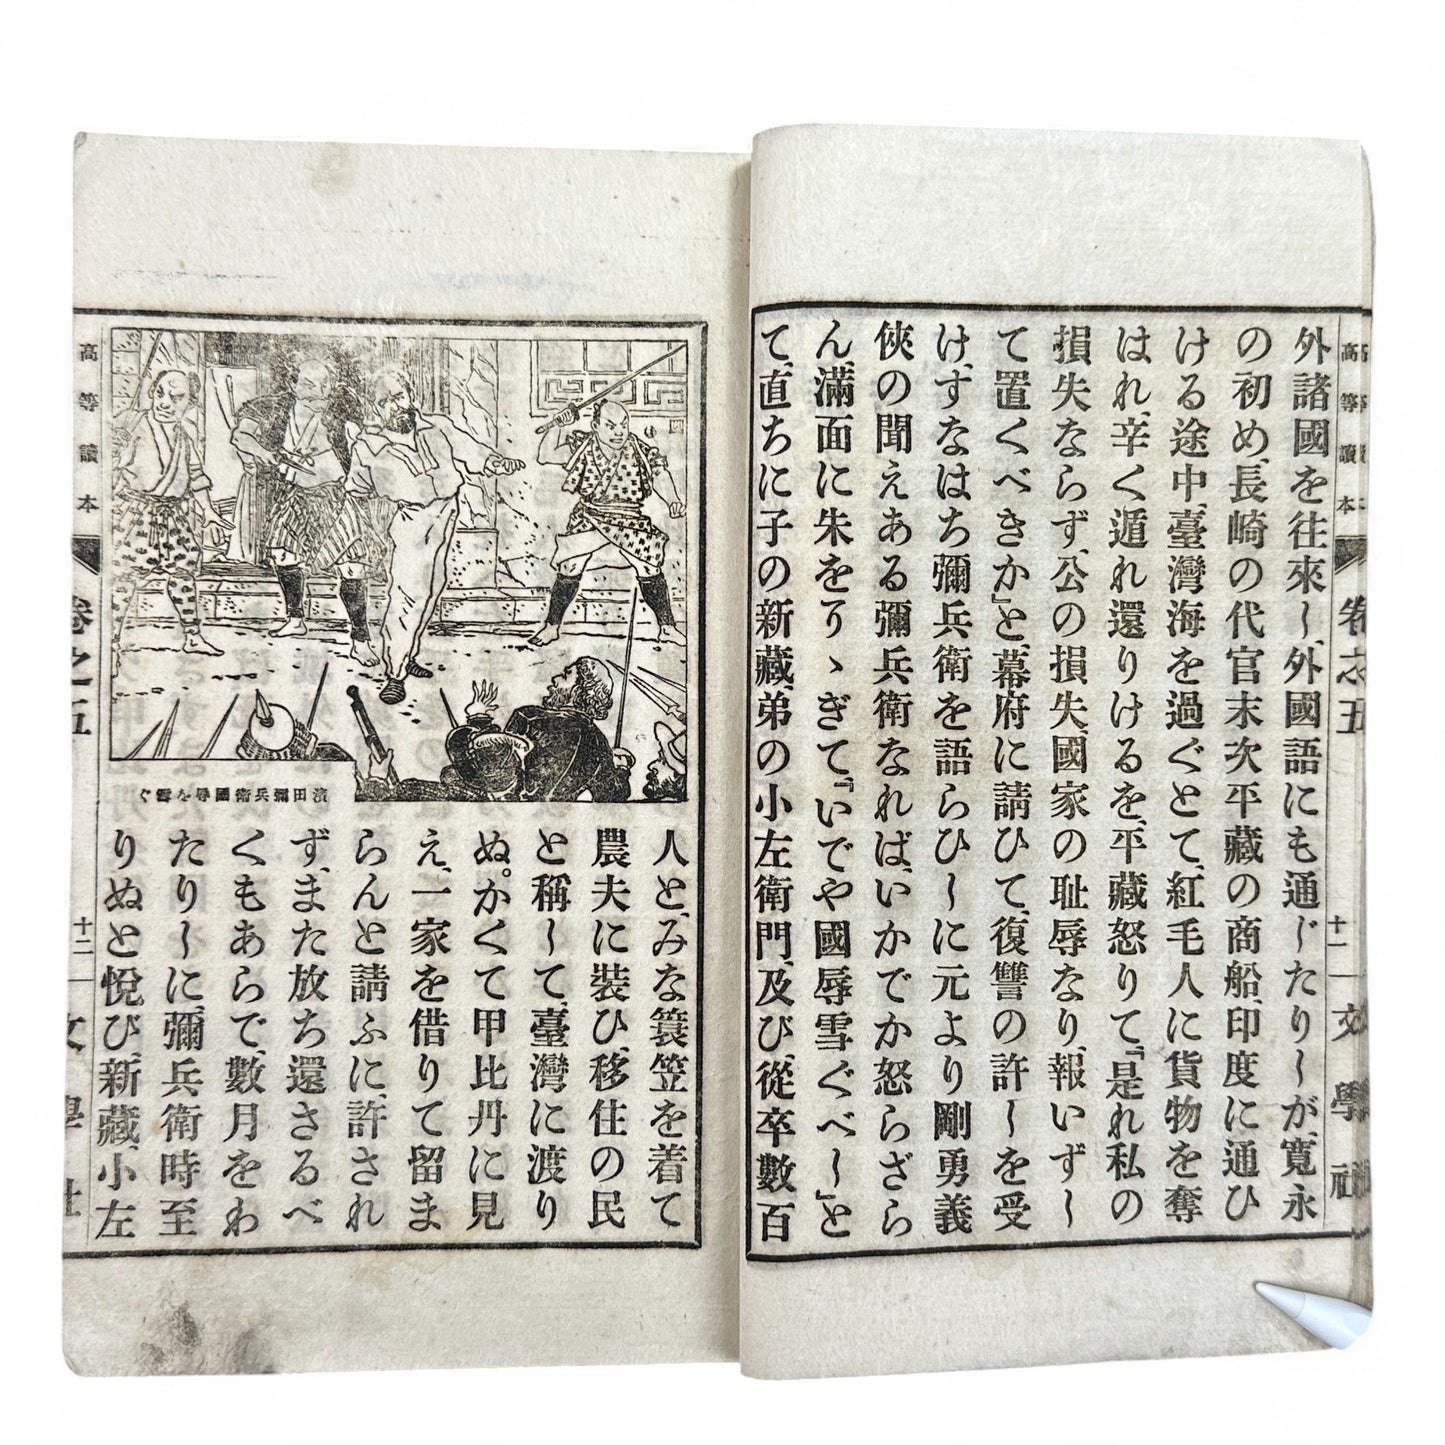 高等讀本
卷之五
十一
文學社
外諸國を往來し、外國語にも通じたりしが、寛永
の初め、長崎の代官末次平藏の商船、印度に通ひ
ける途中、臺灣海を過ぐとて、紅毛人に貨物を奪
はれ、辛く遁れ還りけるを、平藏怒りて、『是れ私の
損失ならず、公の損失、國家の耻辱なり、報いずし
て置くべきか』と、幕府に請ひて、復讐の許しを受
け、すなはち彌兵衛を語らひしに、元より剛勇義
俠の聞えある彌兵衛なれば、いかでか怒らざら
ん、滿面に朱をそゝぎて、『いでや國辱雪ぐべし』と
て、直ちに子の新藏、弟の小左衛門、及び、從卒數百
濱田彌兵衛國辱を雪ぐ
人と、みな簑笠を着て
農夫に裝ひ、移住の民
と稱して、臺灣に渡り
ぬ。かくて甲比丹に見
え、一家を借りて留ま
らんと請ふに、許され
ず、また放ち還さるべ
くもあらで、數月をわ
たりしに、彌兵衛時至
りぬと悅び、新藏、小左
高等讀本
卷之五
十二
文學社